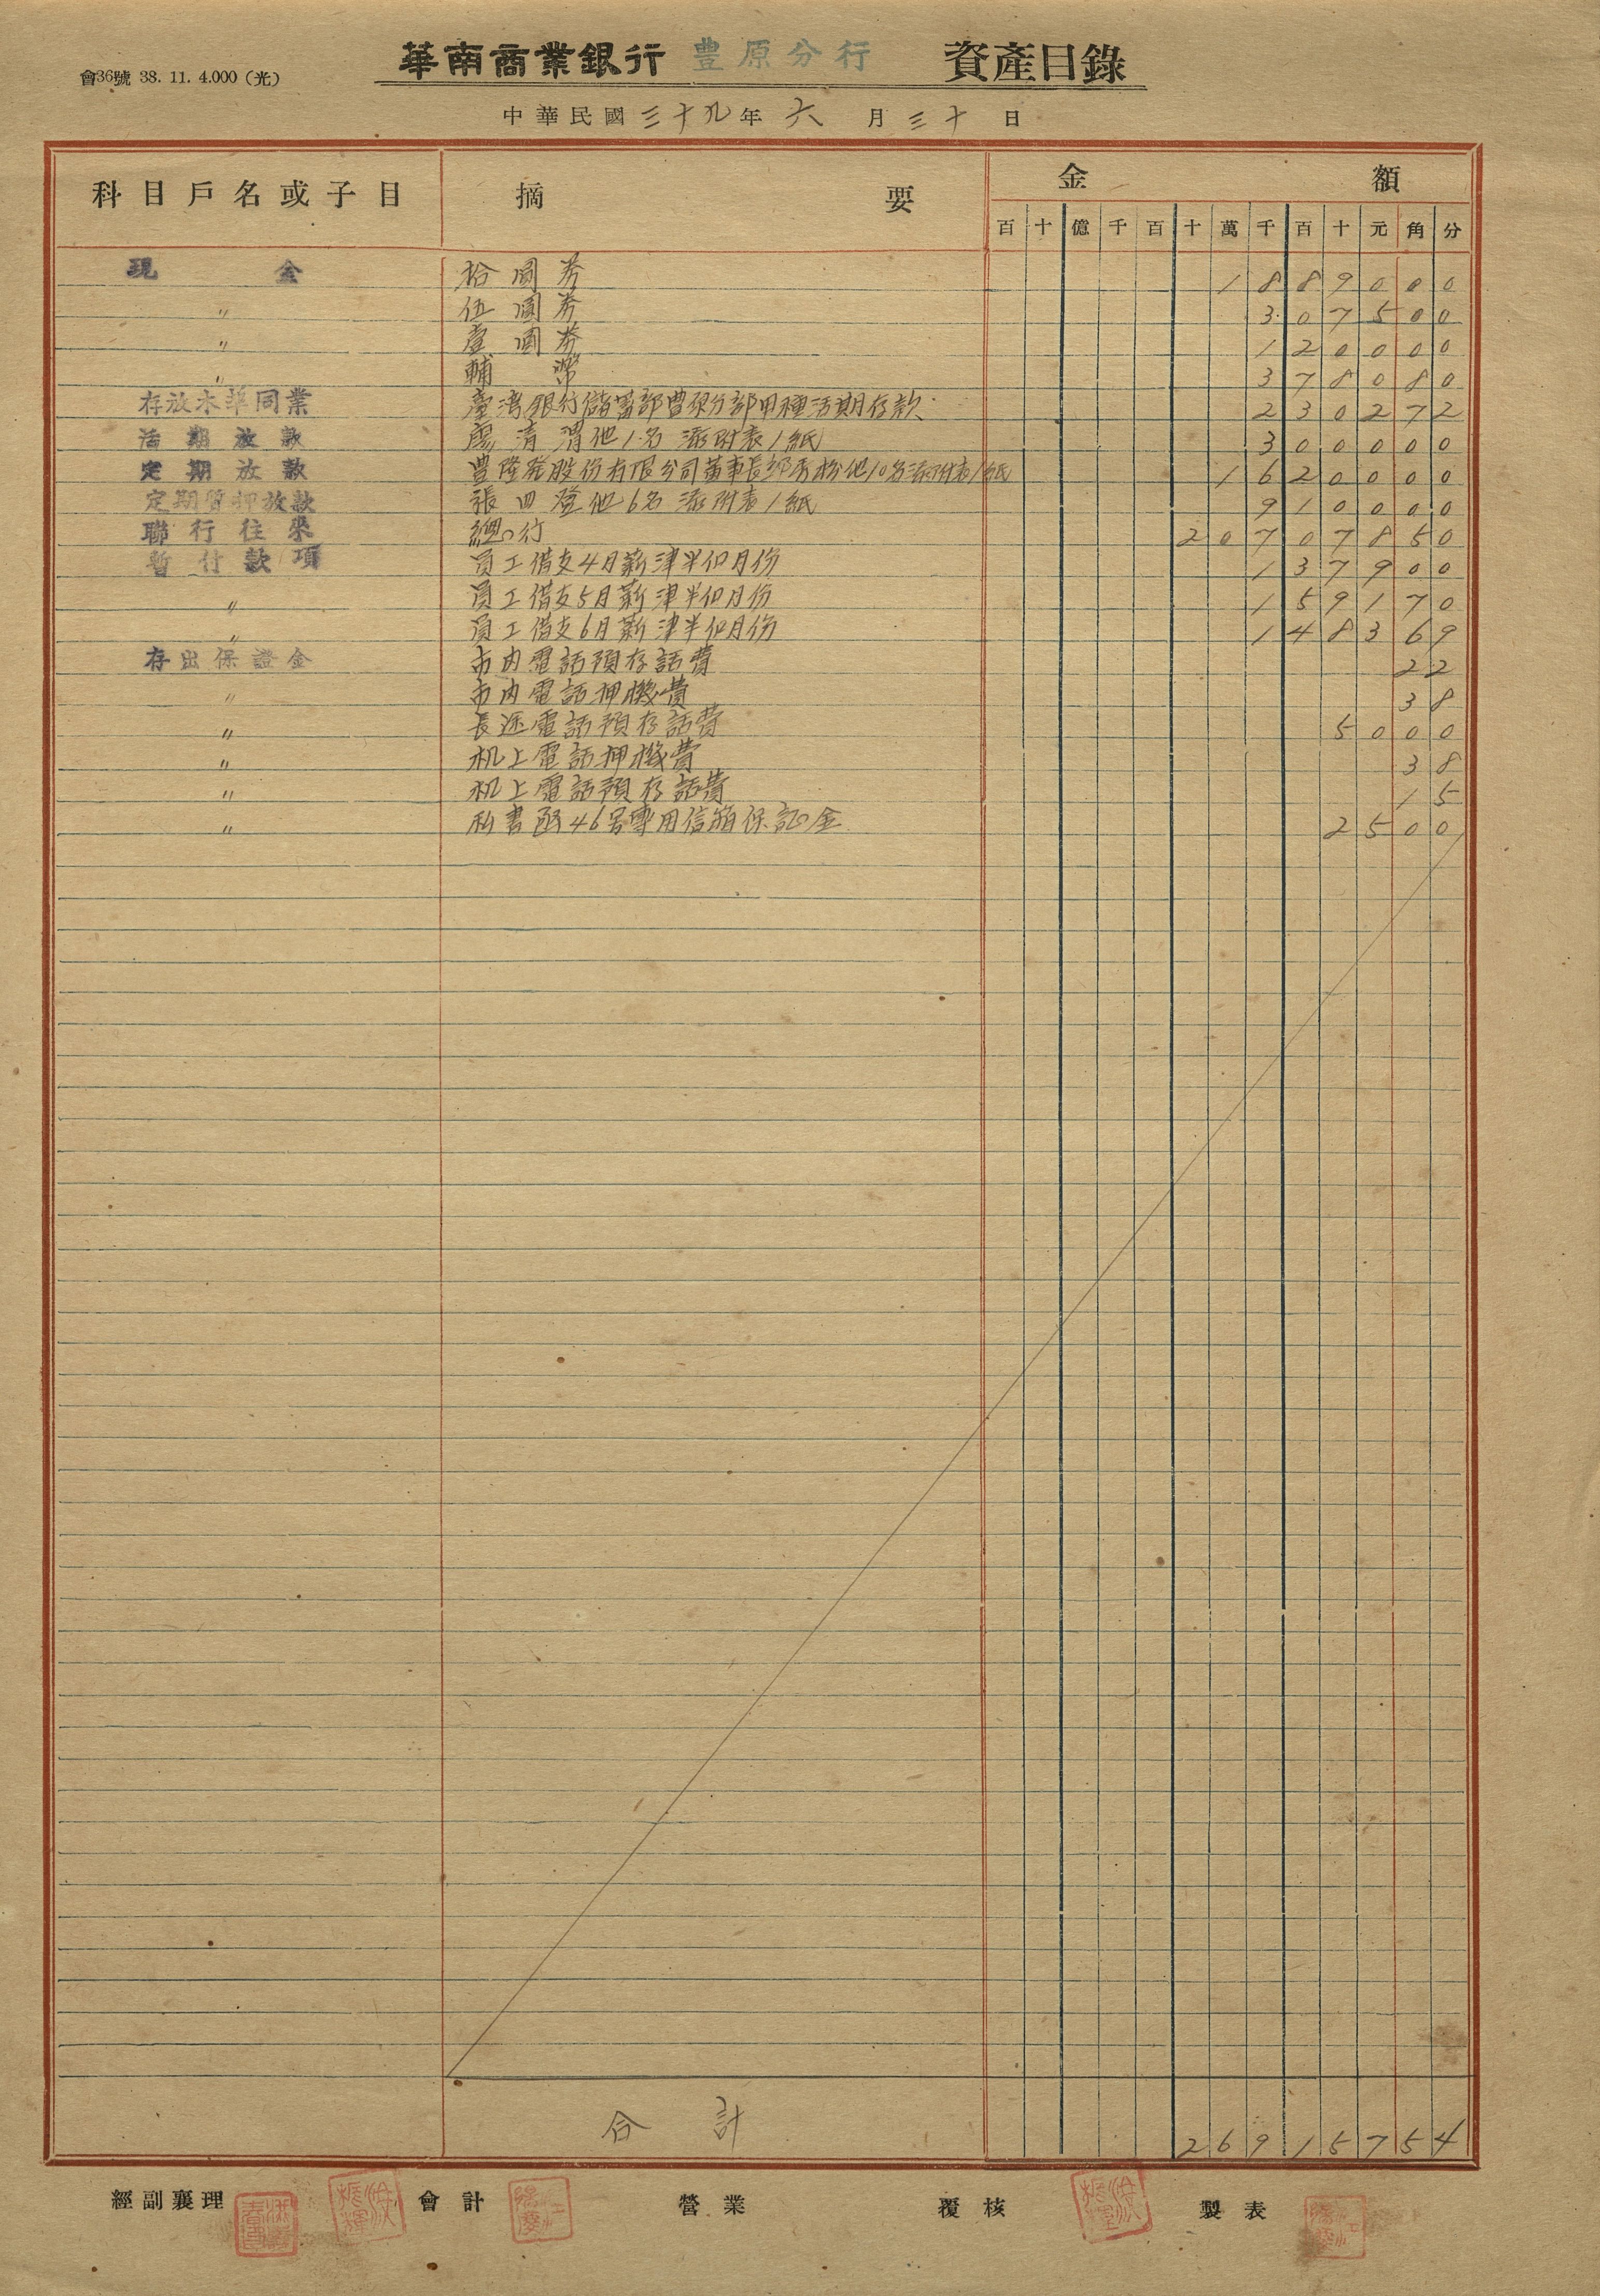 會36號 38. 11. 4.000 (光)
華南商業銀行 豊原分行 資產目錄
中華民國三十九年六月三十日
科目戶名或子目 摘要 金額
百 十 億 千 百 十 萬 千 百 十 元 角 分
現金 拾圓券 1889000
〃 伍圓券 307500
〃 壹圓券 120000
〃 輔幣 378080
存放本華同業 臺灣銀行儲蓄部豊原分部甲種活期存款 230272
活期放款 廖清渭他1名 添附表1紙 300000
定期放款 豊隆発股份有限公司董事長 他10名添附表1紙 1620000
定期質押放款 張四登他6名 添附表1紙 910000
聯行往來 總行 20707850
暫付款項 員工借支4月薪津半個月份 137900
〃 員工借支5月薪津半個月份 159170
〃 員工借支6月薪津半個月份 148369
存出保證金 市內電話預存話費 22
〃 市內電話押機費 38
〃 長途電話預存話費 5000
〃 机上電話押機費 38
〃 机上電話預存話費 15
〃 私書函46号專用信箱保証金 2500
合計 26915754
經副襄理 會計 營業 覆核 製表